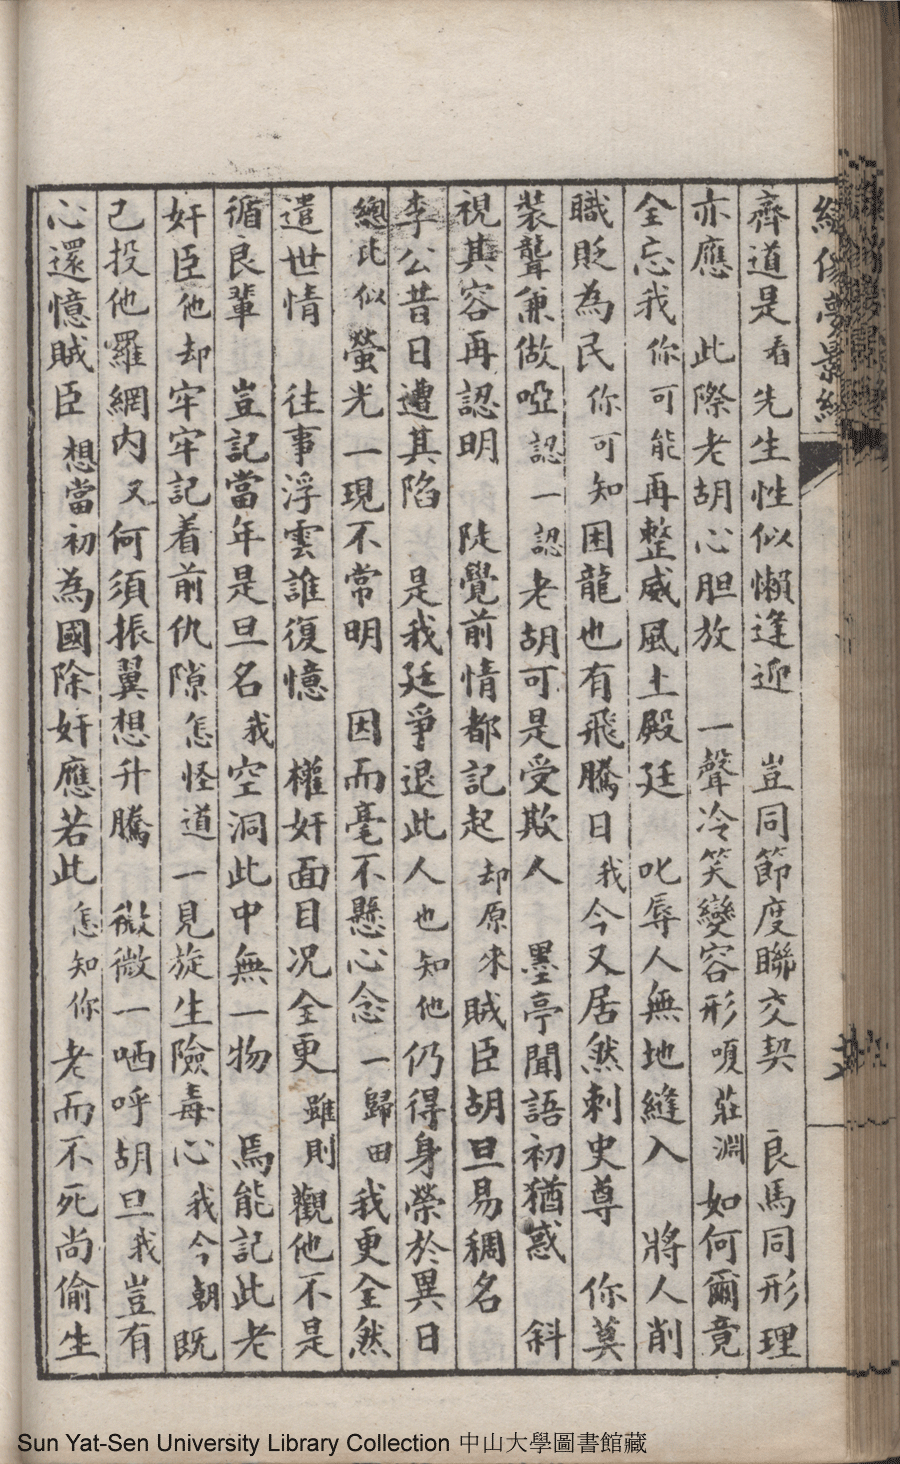 齊道是看先生性似懶逢迎　豈同節度聯交契　良馬同形理
亦應　此際老胡心胆放　一聲冷笑變容形嗄莊淵如何爾竟
全忘我你可能再整威風土殿廷　叱辱人無地縫入　將人削
職貶為民你可知困龍也有飛騰日我今又居然刺史尊　你莫
裝聾兼做啞認一認老胡可是受欺人　墨亭聞語初猶惑　斜
視其容再認明　陡覺前情都記起却原來賊臣胡旦易稠名
李公昔日遭其陷　是我廷爭退此人也知他仍得身榮於異日
總此似螢光一現不常明　因而毫不懸心念一歸田我更全然
遣世情　往事浮雲誰復憶　權奸面目况全更雖則觀他不是
循良輩　豈記當年是旦名我空洞此中無一物　焉能記此老
奸臣他却牢牢記着前仇隙怎怪道一見旋生險毒心我今朝既
己投他羅網内又何須振翼想升騰　微微一哂呼胡旦我豈有
心還憶賊臣想當初為國除奸應若此怎知你老而不死尚偷生
Sun Yat-Sen University Library Collection 中山大學圖書館藏